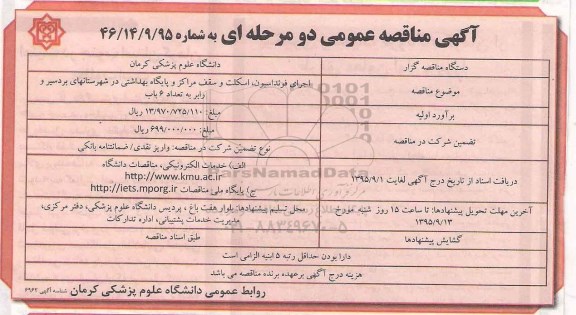 آگهی مناقصه عمومی دو مرحله ای به شماره ۴۶/۱۴/۹/۹۵
دستگاه مناقصه گزار
دانشگاه علوم پزشکی کرمان
موضوع مناقصه
اجرای فونداسیون، اسکلت و سقف مراکز و پایگاه بهداشتی در شهرستانهای بردسیر و
رابر به تعداد ۶ باب
برآورد اولیه
مبلغ: ۱۳/۹۷۰/۷۲۵/۱۱۰ ریال
تضمین شرکت در مناقصه
مبلغ: ۶۹۹/۰۰۰/۰۰۰ ریال
نوع تضمین شرکت در مناقصه: واریز نقدی/ ضمانتنامه بانکی
دریافت اسناد از تاریخ درج آگهی لغایت ۱۳۹۵/۹/۱
الف) خدمات الکترونیکی، مناقصات دانشگاه
http://www.kmu.ac.ir
ج) پایگاه ملی مناقصات http://iets.mporg.ir
آخرین مهلت تحویل پیشنهادها: تا ساعت ۱۵ روز شنبه مورخ
۱۳۹۵/۹/۱۳
محل تسلیم پیشنهادها: بلوار هفت باغ ، پردیس دانشگاه علوم پزشکی، دفتر مرکزی،
مدیریت خدمات پشتیبانی، اداره تدارکات
گشایش پیشنهادها
طبق اسناد مناقصه
دارا بودن حداقل رتبه ۵ ابنیه الزامی است
هزینه درج آگهی برعهده برنده مناقصه می باشد
روابط عمومی دانشگاه علوم پزشکی کرمان
شناسه آگهی ۶۹۶۲
ParsNamadData
۰۲۱-۸۸۳۴۹۶۷۰-۵